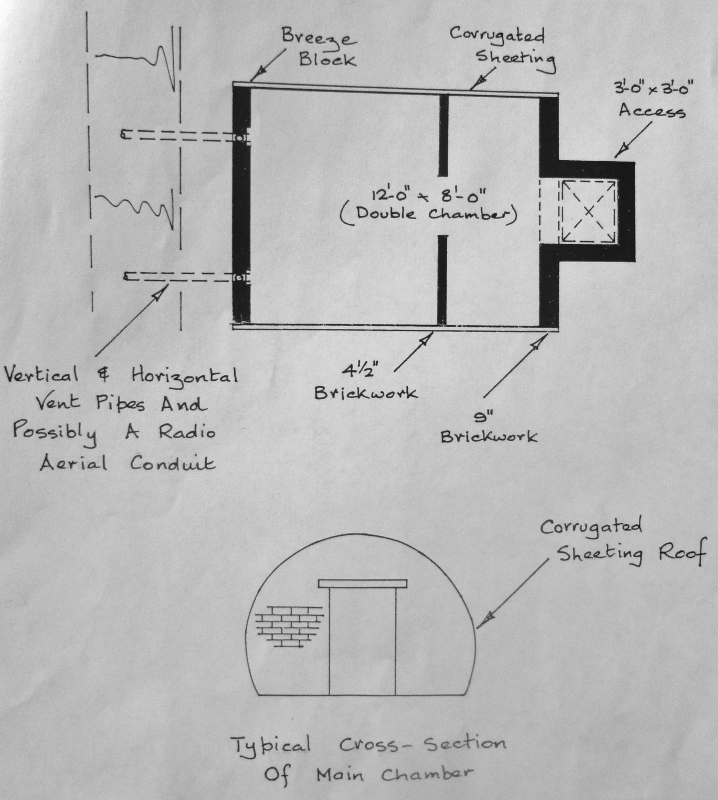 Breeze
Block
Corrugated
Sheeting
3'-0" x 3'-0"
Access
12'-0" x 8'-0"
(Double Chamber)
Vertical & Horizontal
Vent Pipes And
Possibly A Radio
Aerial Conduit
4½"
Brickwork
9"
Brickwork
Corrugated
Sheeting Roof
Typical Cross-Section
Of Main Chamber